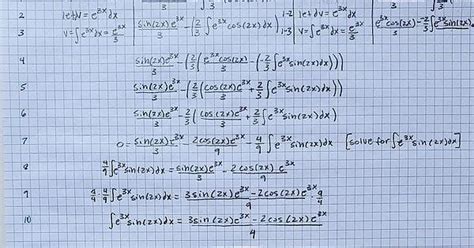 2 let dV = e^{3x}dx | sin(2x)e^{3x}/3 - (2/3 ∫e^{3x}cos(2x)dx) | 1-2 let dV = e^{3x}dx | e^{3x}cos(2x)/3 - -2/3 ∫e^{3x}sin(2x)
3 V = ∫e^{3x}dx = e^{3x}/3 | 1-3 V = ∫e^{3x}dx = e^{3x}/3
4 sin(2x)e^{3x}/3 - (2/3 (e^{3x}cos(2x)/3 - (-2/3 ∫e^{3x}sin(2x)dx)))
5 sin(2x)e^{3x}/3 - (2/3 (cos(2x)e^{3x}/3 + 2/3 ∫e^{3x}sin(2x)dx))
6 sin(2x)e^{3x}/3 - 2/3 (cos(2x)e^{3x}/3 + 2/3 ∫e^{3x}sin(2x)dx)
7 0 = sin(2x)e^{3x}/3 - 2cos(2x)e^{3x}/9 - 4/9 ∫e^{3x}sin(2x)dx [solve for ∫e^{3x}sin(2x)dx]
8 4/9 ∫e^{3x}sin(2x)dx = sin(2x)e^{3x}/3 - 2cos(2x)e^{3x}/9
9 ∫e^{3x}sin(2x)dx = 3sin(2x)e^{3x} - 2cos(2x)e^{3x}/9 · 9/4
10 ∫e^{3x}sin(2x)dx = 3sin(2x)e^{3x} - 2cos(2x)e^{3x}/4